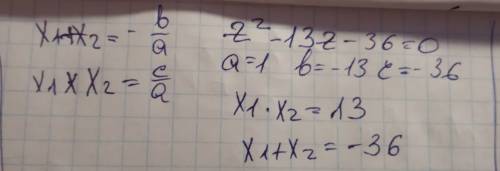 x1+x2 = - b/a
x1 x x2 = c/a
z² - 13z - 36 = 0
a=1 b=-13 c=-36
x1 · x2 = 13
x1+x2 = -36